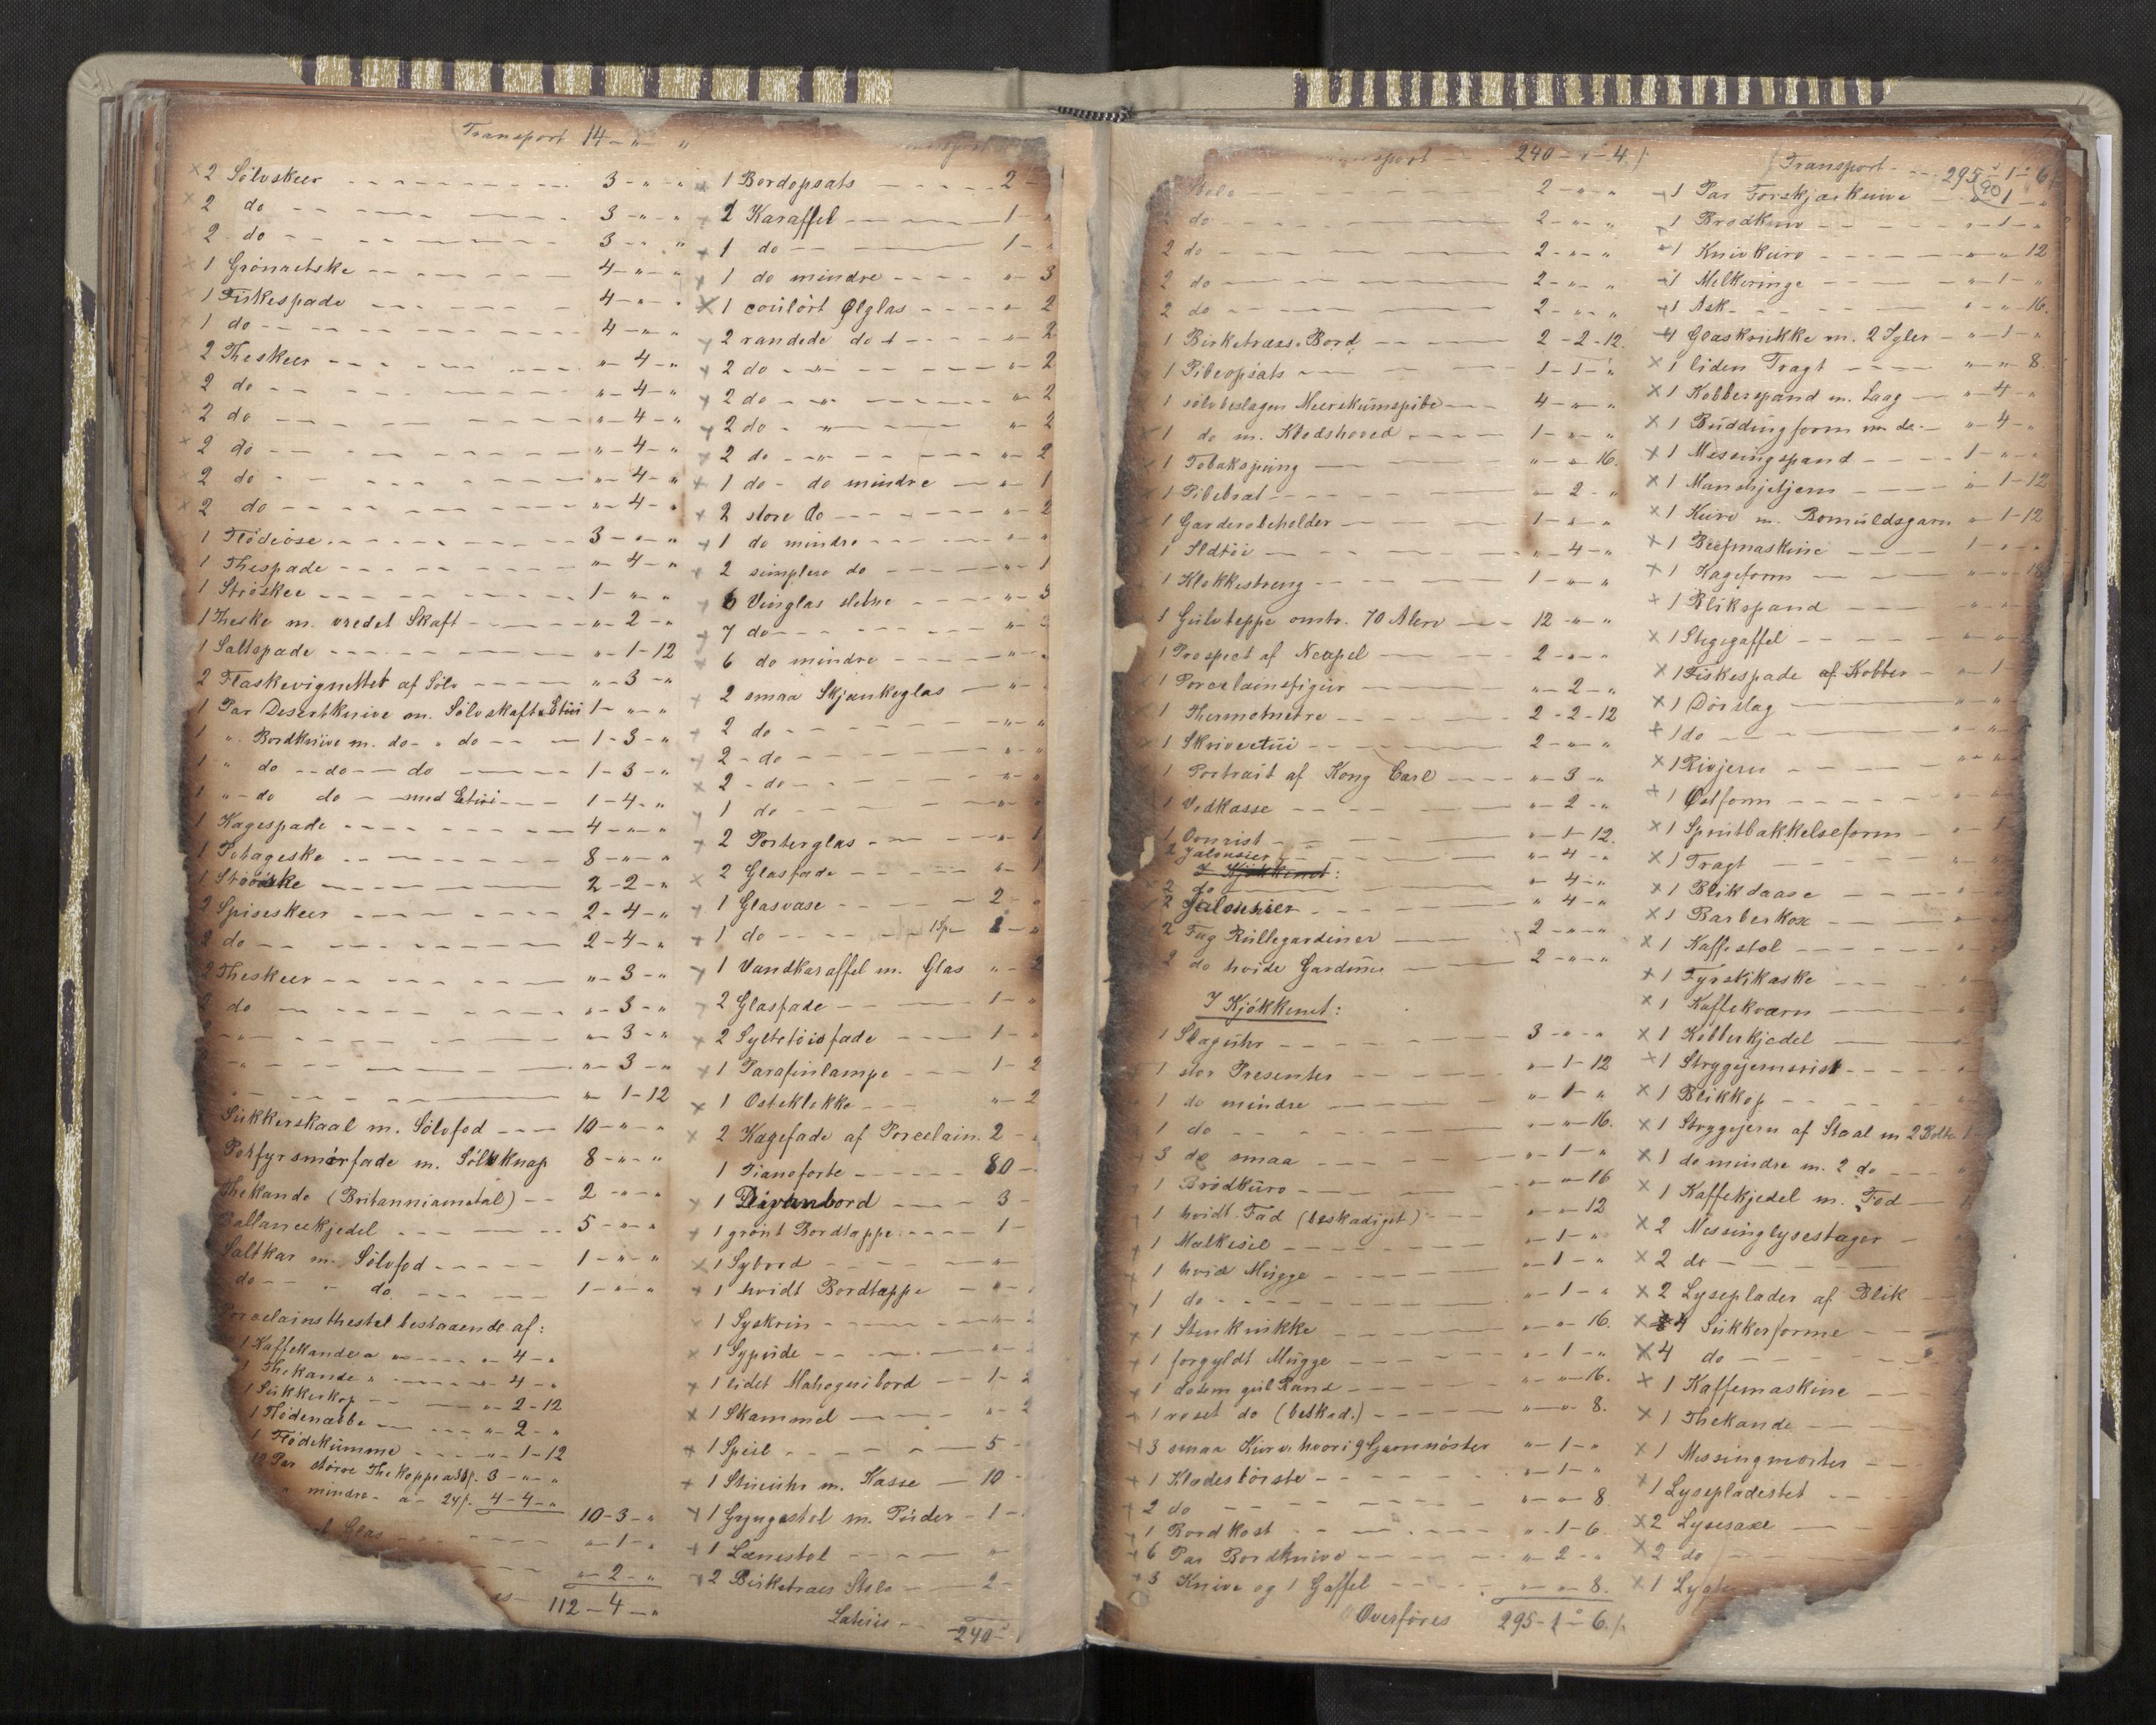 Transport 14 - " - "
2 Sölvskeer 3 - " - "
2 do 3 - " - "
2 do 3 - " - "
1 Grönaetske 4 - " - "
1 Fiskespade 4 - " - "
1 do 4 - " - "
2 Theskeer " - 4 - "
2 do " - 4 - "
2 do " - 4 - "
2 do " - 4 - "
2 do " - 4 - "
2 do " - 4 - "
1 Flödeöse 3 - " - "
1 Thespade " - 4 - "
1 Ströskee 1 - " - "
1 Theske m. vredet Skaft " - 2 - "
1 Saltspade " - 1 - 12
2 Flaskevignetter af Sölv " - 3 - "
1 Par Desertknive m. Sölvskaft Etui 1 - " - "
1 " Bordknive m. do - " do 1 - 3 - "
1 " do - do - do 1 - 3 - "
1 " - do do - med Etui 1 - 4 - "
1 Kagespade 4 - " - "
1 Potageske 8 - " - "
1 Ströske 2 - 2 - "
2 Spiseskeer 2 - 4 - "
2 do 2 - 4 - "
2 Theskeer " - 3 - "
2 do " - 3 - "
2 - " - " - 3 - "
- " - " - 3 - "
" - 1 - 12
Sukkerskaal m. Sölvfod 10 - " - "
Porfyrsmörfade m. Sölvknap 8 - " - "
Thekande (Britanniametal) 2 - " - "
Ballancekjedel 5 - " - "
Saltkar m. Sölvfod 1 - " - "
do - " - do 1 - " - "
Porcelainsthestel bestaaende af:
1 Kaffekande " - 4 - "
1 Thekande " - 4 - "
1 Sukkerkop " - 2 - 12
1 Flödenæbbe " - 2 - "
1 Flödekumme " - 1 - 12
12 Par större Thekoppe a 3 - " - "
" mindre - a - 24 /. 4 - 4 - "
10 - 3 - "
Glas " - 1 - "
" - 2 - "
112 - 4 - "
1 Bordopsats 2 -
2 Karaffel 1 -
1 do 1 -
1 do mindre " - 3
1 coulört Ølglas " - 2
2 randede do " - 2
2 do - " - " - 2
2 do - " - " - 2
2 do - " - " - 2
2 do - " - " - 2
1 do - do mindre " - 1
2 store do " - 2
1 do mindre " - "
2 simplere do " - 1
6 Vinglas slebne " - 3
7 do "
6 do mindre "
2 smaa Skjænkeglas "
2 do "
2 - do "
2 - do "
1 do "
2 Porterglas " - 1
2 Glasfade " - 1
1 Glasvase 2 -
1 do 1 Sp -
1 Vandkaraffel m. Glas " - 2
2 Glasfade 1 - "
2 Syltetöisfade 1 - "
1 Parafinlampe 1 - 2
1 Osteklokke " - 2
2 Kagefade af Porcelain 2 -
1 Pianoforte 80 -
1 Divanbord 3 -
1 grönt Bordtæppe 1 -
1 Sybord "
1 hvidt Bordtæppe "
1 Syskrin "
1 Sypude "
1 lidet Mahognibord 1 - 2
1 Skammel " - 2
1 Speil 5 -
1 Stueuhr m. Kasse 10 -
1 Gyngestol m. Puder 1 -
1 Lænestol "
2 Birketraes Stole 2 -
Lateris 240 -
Transport 240 - " - 4 /
Stole 2 - " - "
do 2 - " - "
2 do 2 - " - "
2 do 2 - " - "
2 do 2 - " - "
1 Birketraes Bord 2 - 2 - 12.
1 Pibeopsats 1 - 1 - "
1 sölvbeslagen Meerskumspibe 4 - " - "
1 do m. Klodshoved 1 - " - "
1 Tobakspung " - " - 16.
1 Pibebræt " - 2 - "
1 Garderobeholder 1 - " - "
1 Ildtöi " - 4 - "
1 Klokkestreng 1 - " - "
1 Gulvteppe omtr. 70 Alen 12 - " - "
1 Prospect af Neapel 2 - " - "
1 Porcelainsfigur " - 2 - "
1 Thermometre 2 - 2 - 12
1 Skriveetui 2 - " - "
1 Portrait af Kong Carl " - 3 - "
1 Vedkasse " - 2 - "
1 Ovnrist " - 1 - 12.
2 Jalousier " - 4 - "
I Kjökkenet:
2 do " - 4 - "
2 Jalousier " - 4 - "
2 Fag Rullegardiner 2 - " - "
2 do hvide Gardiner 2 - " - "
I Kjökkenet:
1 Slaguhr 3 - " - "
1 stor Presenter " - 1 - 12
1 do mindre " - 1 - "
1 do " - " - 16.
3 do smaa " - 1 - "
1 Brödkurv " - " - 16
1 hvidt Fad (beskadiget) " - " - 12
1 Malkesie " - 1 - "
1 hvid Mugge " - 1 - "
1 do " - 1 - "
1 Stenkrukke " - " - 16.
1 forgyldt Mugge " - 1 - "
1 do som gul Rand " - " - 16.
1 roset do (beskad.) " - " - 8.
3 smaa Kurve hvori 9 Garnnöster " - 1 - "
1 Klædesbörste " - 1 - "
2 do " - " - 8
1 Bordkost " - 1 - 6.
6 Par Bordknive " - 2 - "
3 Knive og 1 Gaffel " - " - 8.
Overföres 295 - 1 - 6./.
Transport 295 - 1 - 6/
90
1 Par Forskjærknive " - 1 - "
1 Brødkniv " - 1 - "
1 Knivkurv " - " 12
1 Melkeringe " - 1 - "
1 Ask " - " - 16.
4 Glaskrukke m. 2 Igler " - 1 - "
1 liden Tragt " - " - 8
1 Kobberspand m. Laag " - 4 - "
1 Buddingform m do " - 4 - "
1 Messingspand 1 - " - "
1 Manshjetjern " - 1 - 12
1 Kurv m. Bomuldsgarn " - 1 - 12
1 Beefmaskine 1 - " - "
1 Kageform " - " - 18
1 Blikspand
1 Stegegaffel
1 Fiskespade af Kobber " - 1 -
1 Dörslag
1 do
1 Rivjern
1 Østform
1 Sprutbakkelseform " - 1 -
1 Tragt
1 Blikdaase
1 Barberkox
1 Kaffestol
1 Fyrstikaske
1 Kaffekværn
1 Kobberkjedel
1 Strygejernsrist
1 Blikkop
1 Strygejern af Staal m 2 Bolte 1 -
1 do mindre m. 2 do
1 Kaffekjedel m. Fod
2 Messinglysestager
2 do
2 Lyseplader af Blik
4 Sukkerforme
4 do
1 Kaffemaskine
1 Thekande
1 Messingmorter
1 Lysepladestet
2 Lysesaxe
2 do
1 Lygte